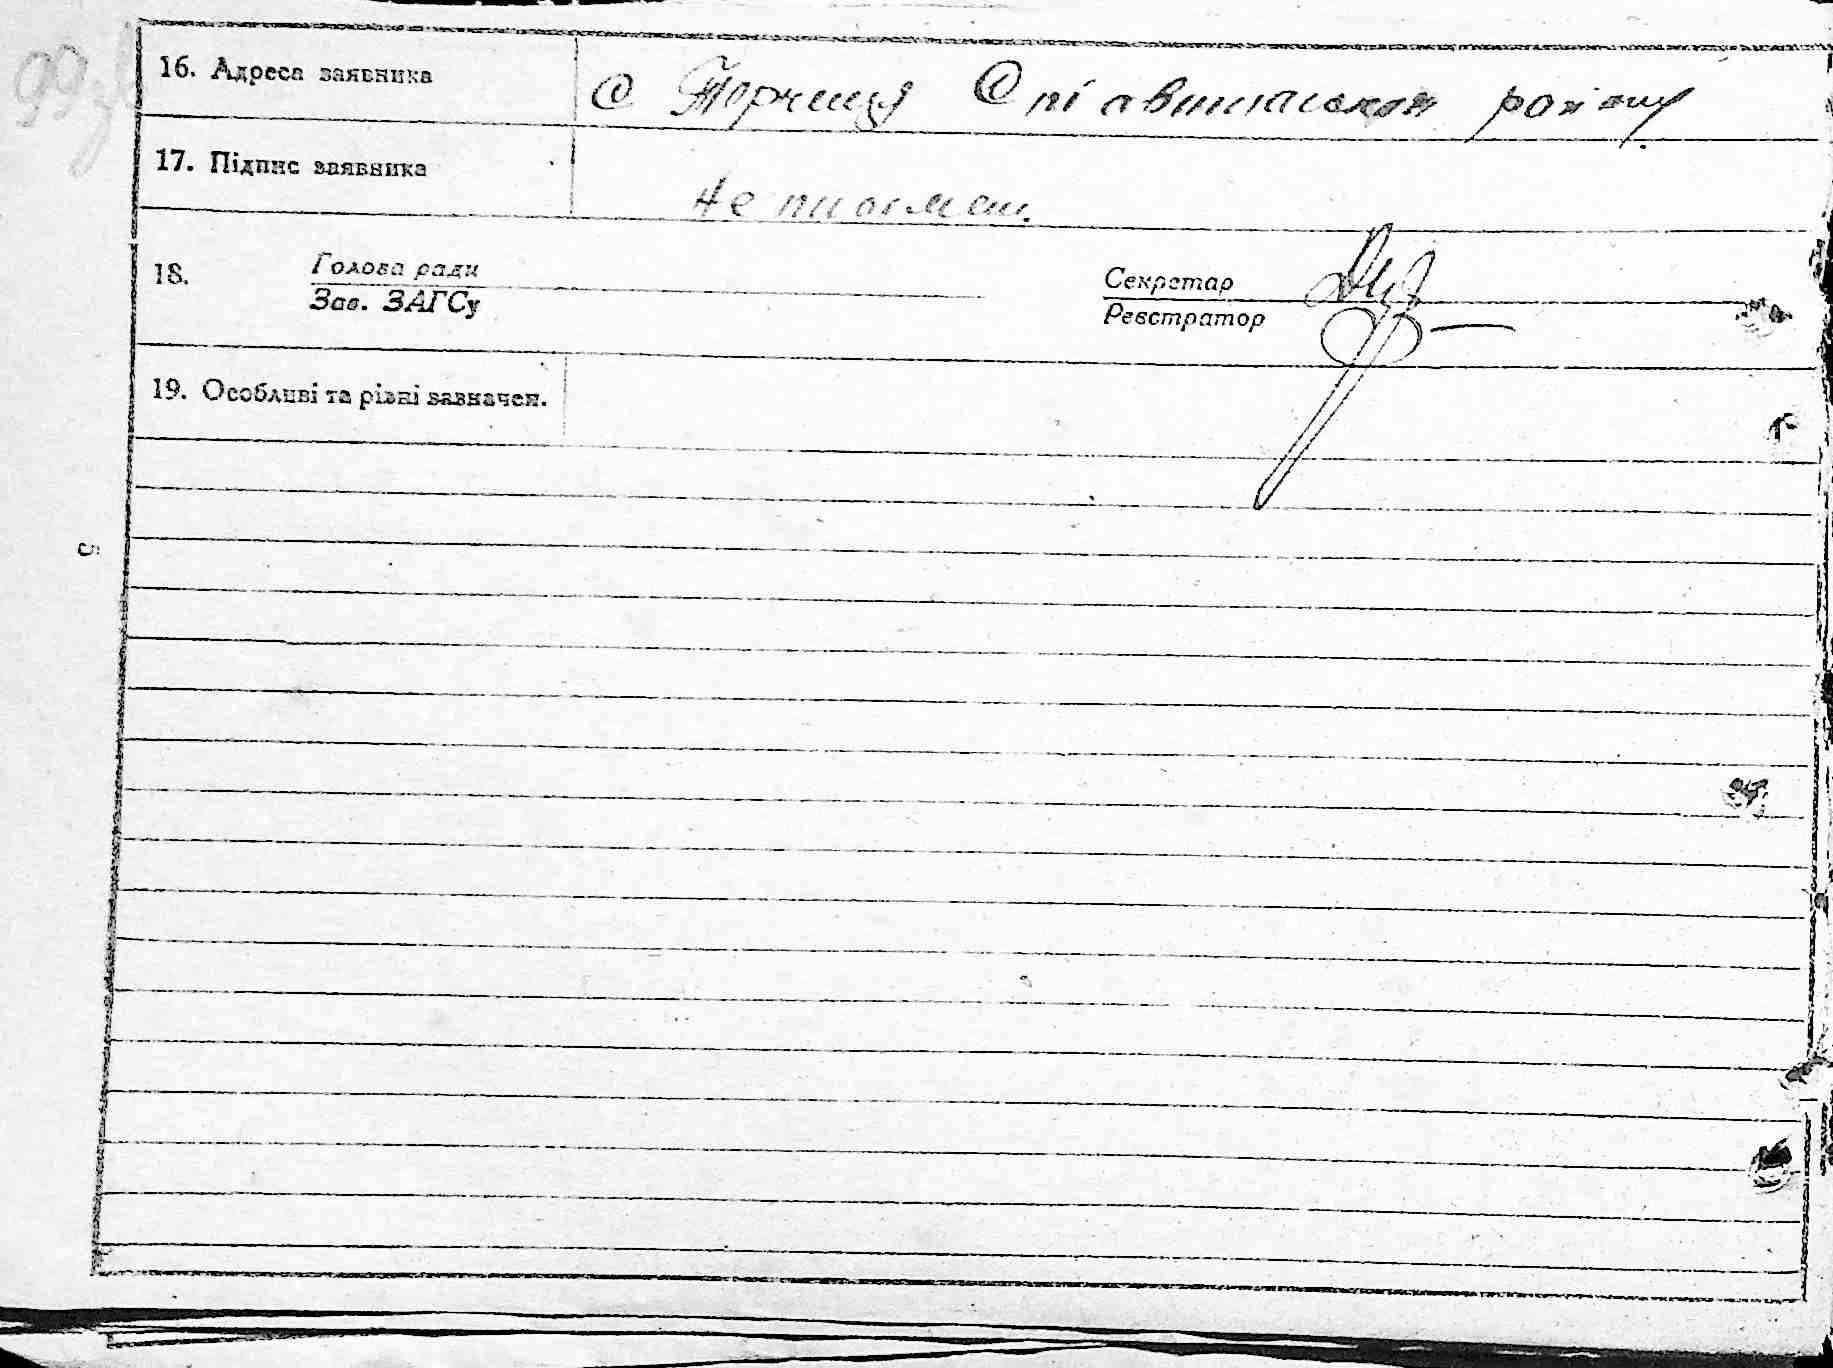 99зв
16. Адреса заявника С Торчиця Ставищанськой району
17. Підпис заявника
Не письмен.
18. Голова ради Секретар
Зав. ЗАГСу Реєстратор
19. Особливі та різні зазначен.
5